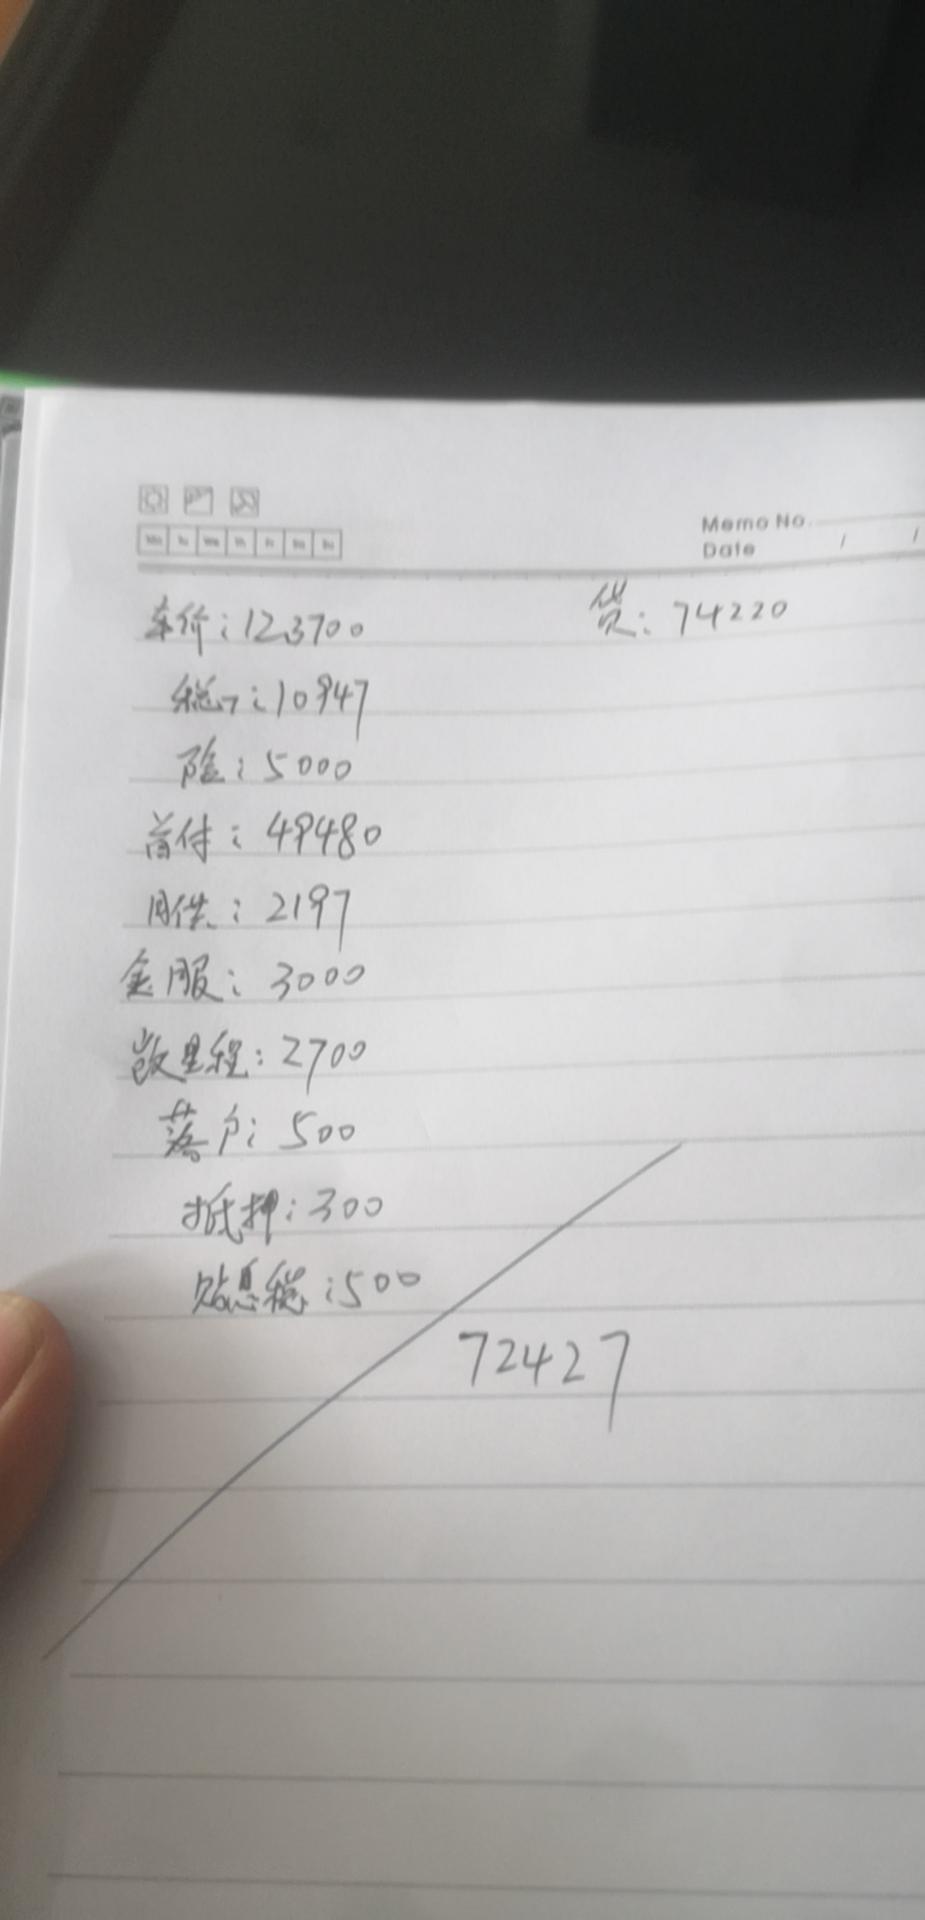 Memo No.
Date / /
车价：123700
贷：74220
税：10947
险：5000
首付：49480
月供：2197
金服：3000
里程：2700
落户：500
抵押：300
贴息税：500
72427